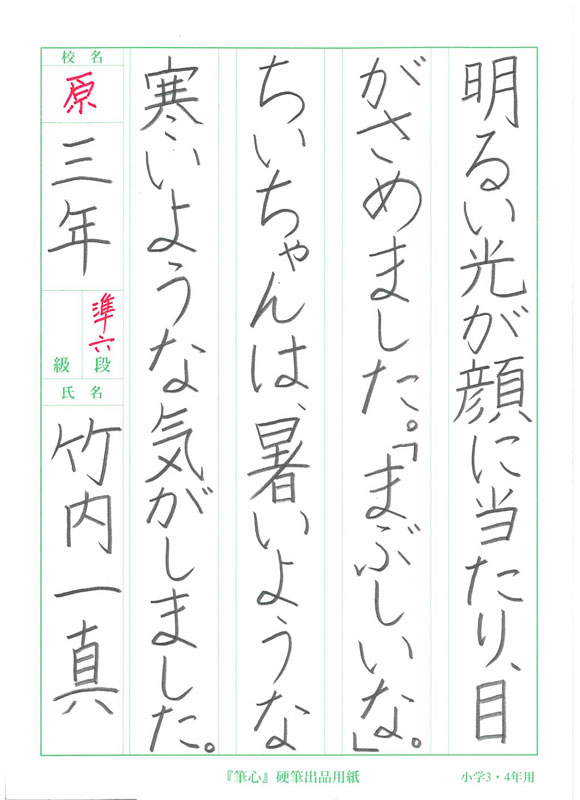 明るい光が顔に当たり、目
がさめました。「まぶしいな。」
ちいちゃんは、暑いような
寒いような気がしました。
校名
原
三年
準六
級 段
氏名
竹内一真
『筆心』硬筆出品用紙
小学3・4年用